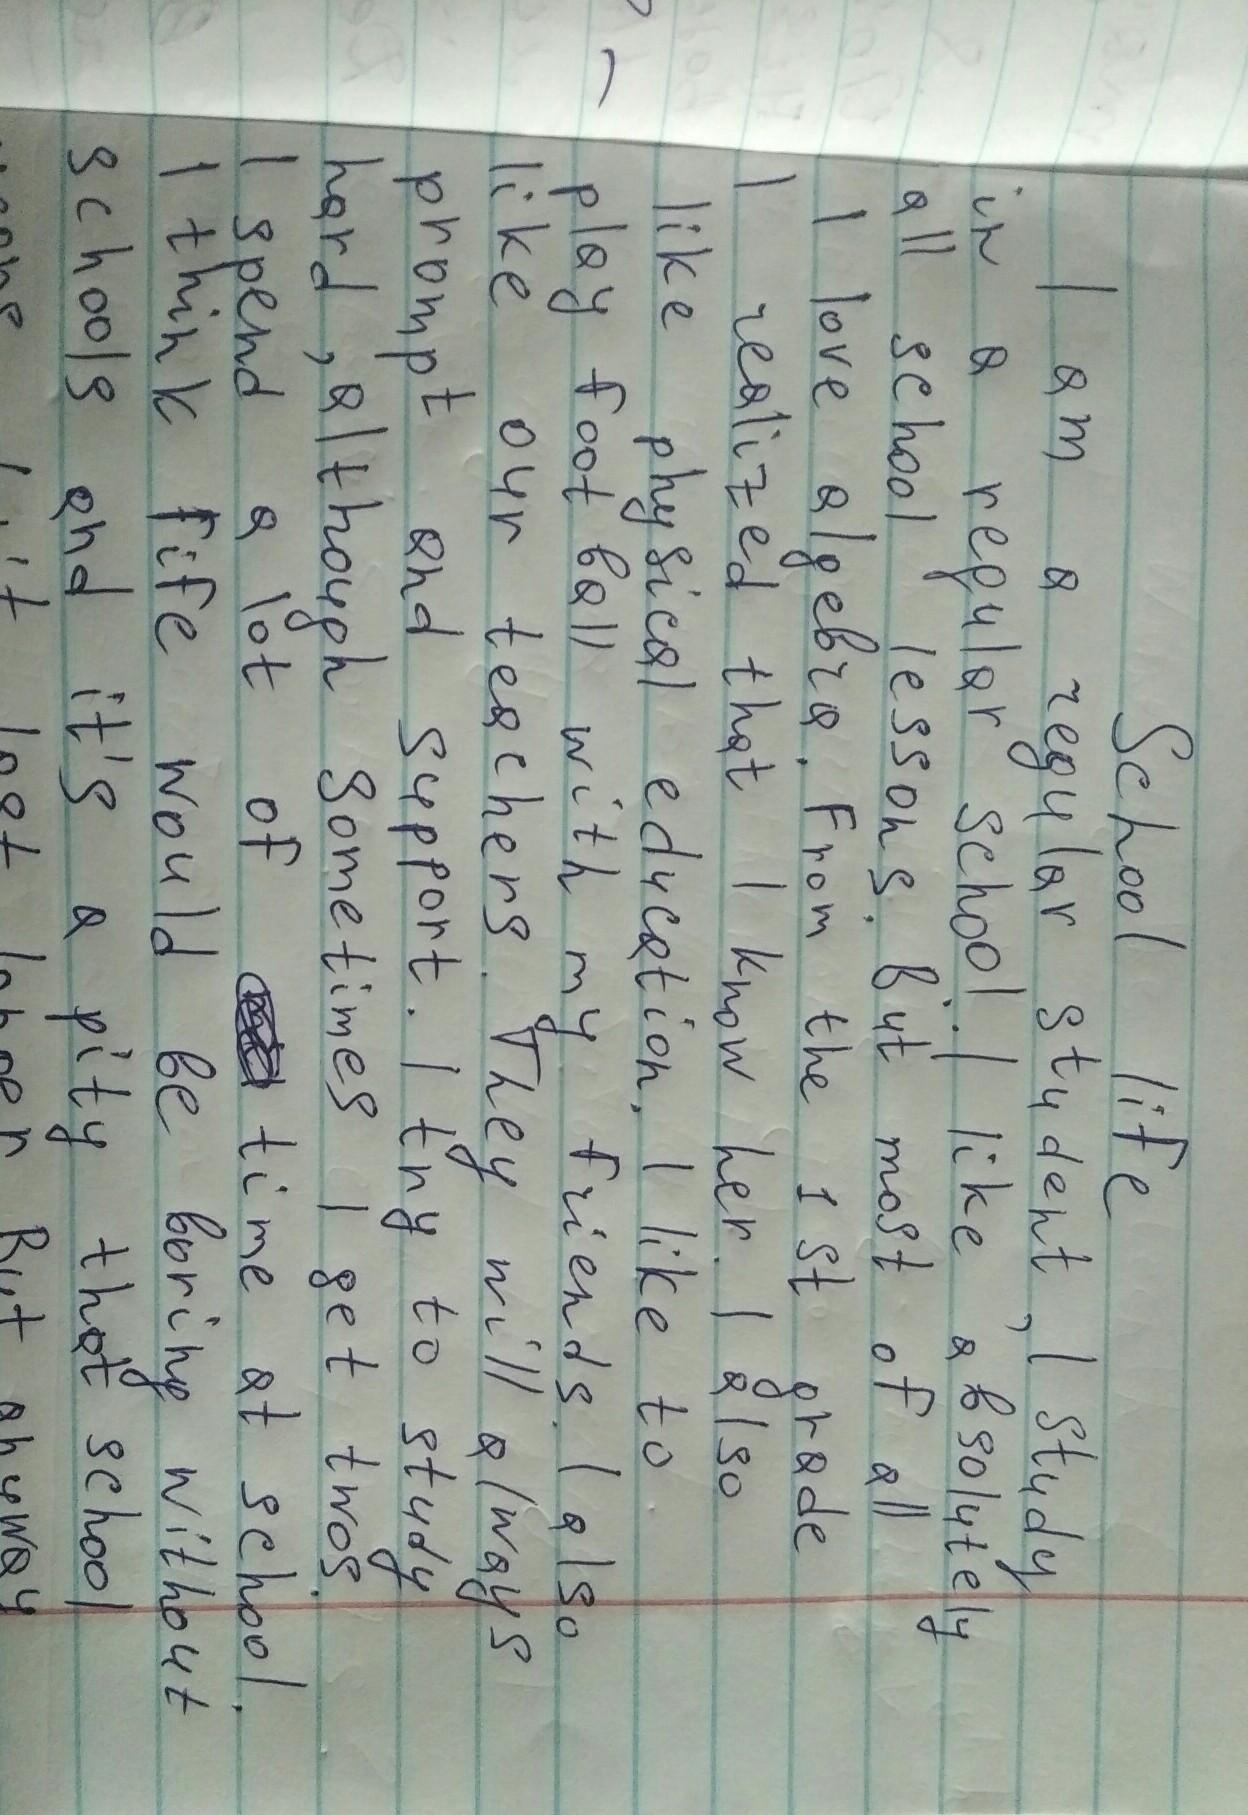 School life
I am a regular student, I study
in a regular school. I like absolutely
all school lessons. but most of all
I love algebra. From the 1st grade
I realized that I know her. I also
like physical education. I like to
play football with my friends. I also
like our teachers. They will always
prompt and support. I try to study
hard, although sometimes I get twos.
I spend a lot of time at school.
I think fife would be boring without
schools and it's a pity that school
But anyway